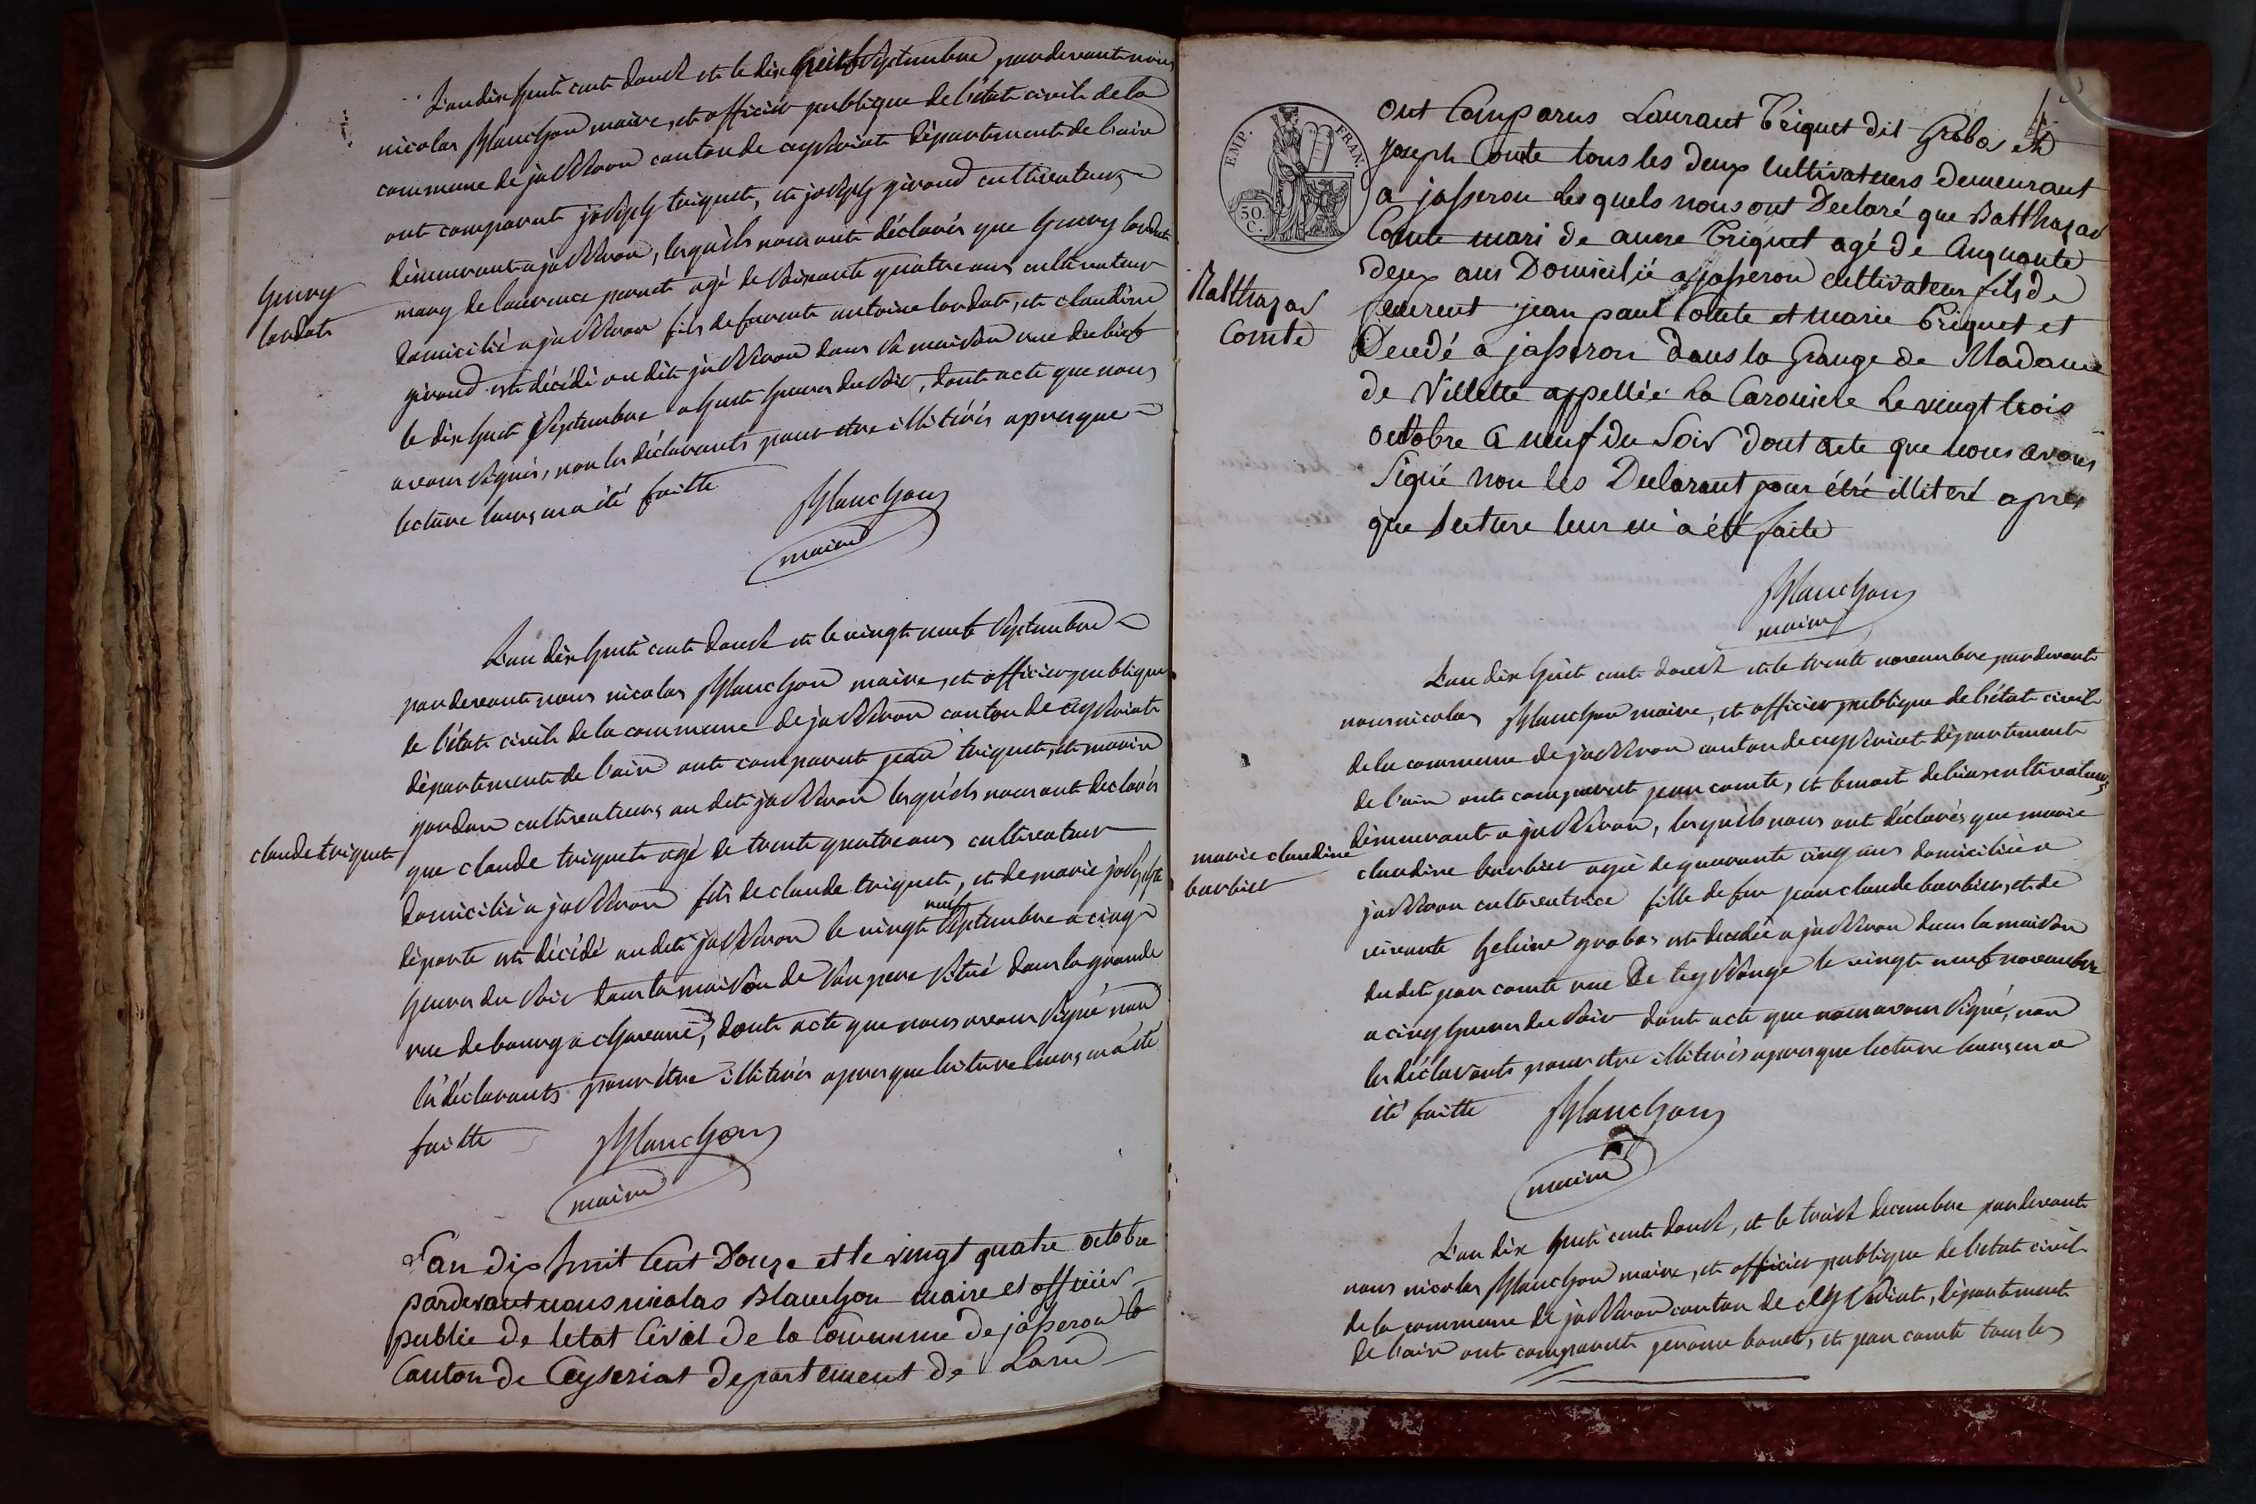 L'an dix huit cent douse et le dix huit septembre pardevant nous
nicolas Blanchon maire, et officier publique de l'état civil de la
commune de jasseron canton de ceyseriat département de l'ain
ont comparut joseph triquet, et joseph giroud cultivateurs
démeurant a jasseron, lesquels nous ont déclarés que
mary de laurence agé de soixante quatre ans cultivateur
domicilié a jasseron fils de antoine et claudine
giroud est décédé au dit jasseron dans sa maison rue du bief
le dix huit septembre a huit heures du soir, dont acte que nous
avons signés, non les déclarants pour etre illitérés apres que
lecture leurs en a été faitte
Blanchon
maire
L'an dix huit cent douse et le vingt neuf septembre
pardevant nous nicolas Blanchon maire, et officier publique
de l'état civil de la commune de jasseron canton de ceyseriat
département de l'ain ont comparut jean triquet, et
cultivateurs au dit jasseron lesquels nous ont declarés
claude triquet
que claude triquet agé de trente quatre ans cultivateur
domicilié a jasseron fils de claude triquet, et de marie josephte
neuf
est décédé au dit jasseron le vingt septembre a cinq
heures du soir dans la maison de son pere situé dans la grande
rue de bourg a, dont acte que nous avons signé non
les déclarants pour être illitérés apres que lecture leurs en a été
faitte
Blanchon
maire
L'an dix huit Cent Douze et le vingt quatre octobre
pardevant nous nicolas Blanchon maire et officier
public de letat Civil de la Commune de jasseron
Canton de Ceyseriat departement de Lain
EMP. FRAN.
50. C.
ont Comparus Laurant Triquet dit Grobas et
joseph Comte tous les deux Cultivateurs demeurant
a jasseron Lesquels nous ont Declaré que Balthazar
Comte mari de anne Triquet agé de Cinquante
deux ans Domicilié a jasseron cultivateur fils de
Balthazar
Comte
jean paul Comte et marie Triquet et
Decedé a jasseron dans la Grange de Madame
de Villette appellée La Le vingt trois
octobre a neuf du Soir dont acte que nous avons
Signé non les Declarant pour étré illiteré apres
que lecture leur en a été faite
Blanchon
maire
L'an dix huit cent douse et le trente novembre pardevant
nous nicolas Blanchon maire, et officier publique de l'état civil
de la commune de jasseron canton de ceyseriat département
de l'ain ont comparut jean comte, et benoit cultivateurs
démeurant a jasseron, lesquels nous ont déclarés que marie
marie claudine
barbier
claudine barbier agée de quarante cinq ans domiciliée a
jasseron cultivatrice fille de feu jean claude barbier, et de
vivante heleine grobas est decedée a jasseron dans la maison
du dit jean comte rue De le vingt neuf novembre
a cinq heures du soir dont acte que nous avons signé, non
les déclarants pour etre illitérés apres que lecture leurs en a
été faitte
Blanchon
maire
L'an dix huit cent douse, et le troise decembre pardevant
nous nicolas Blanchon maire, et officier publique de l'état civil
de la commune de jasseron canton de ceyseriat, département
de l'ain ont comparut jerome, et jean comte tous les